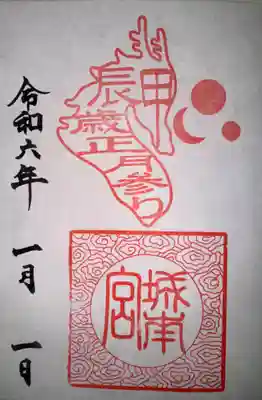 甲
辰
歳正
月参り
城南
宮
令和六年
一月
一日